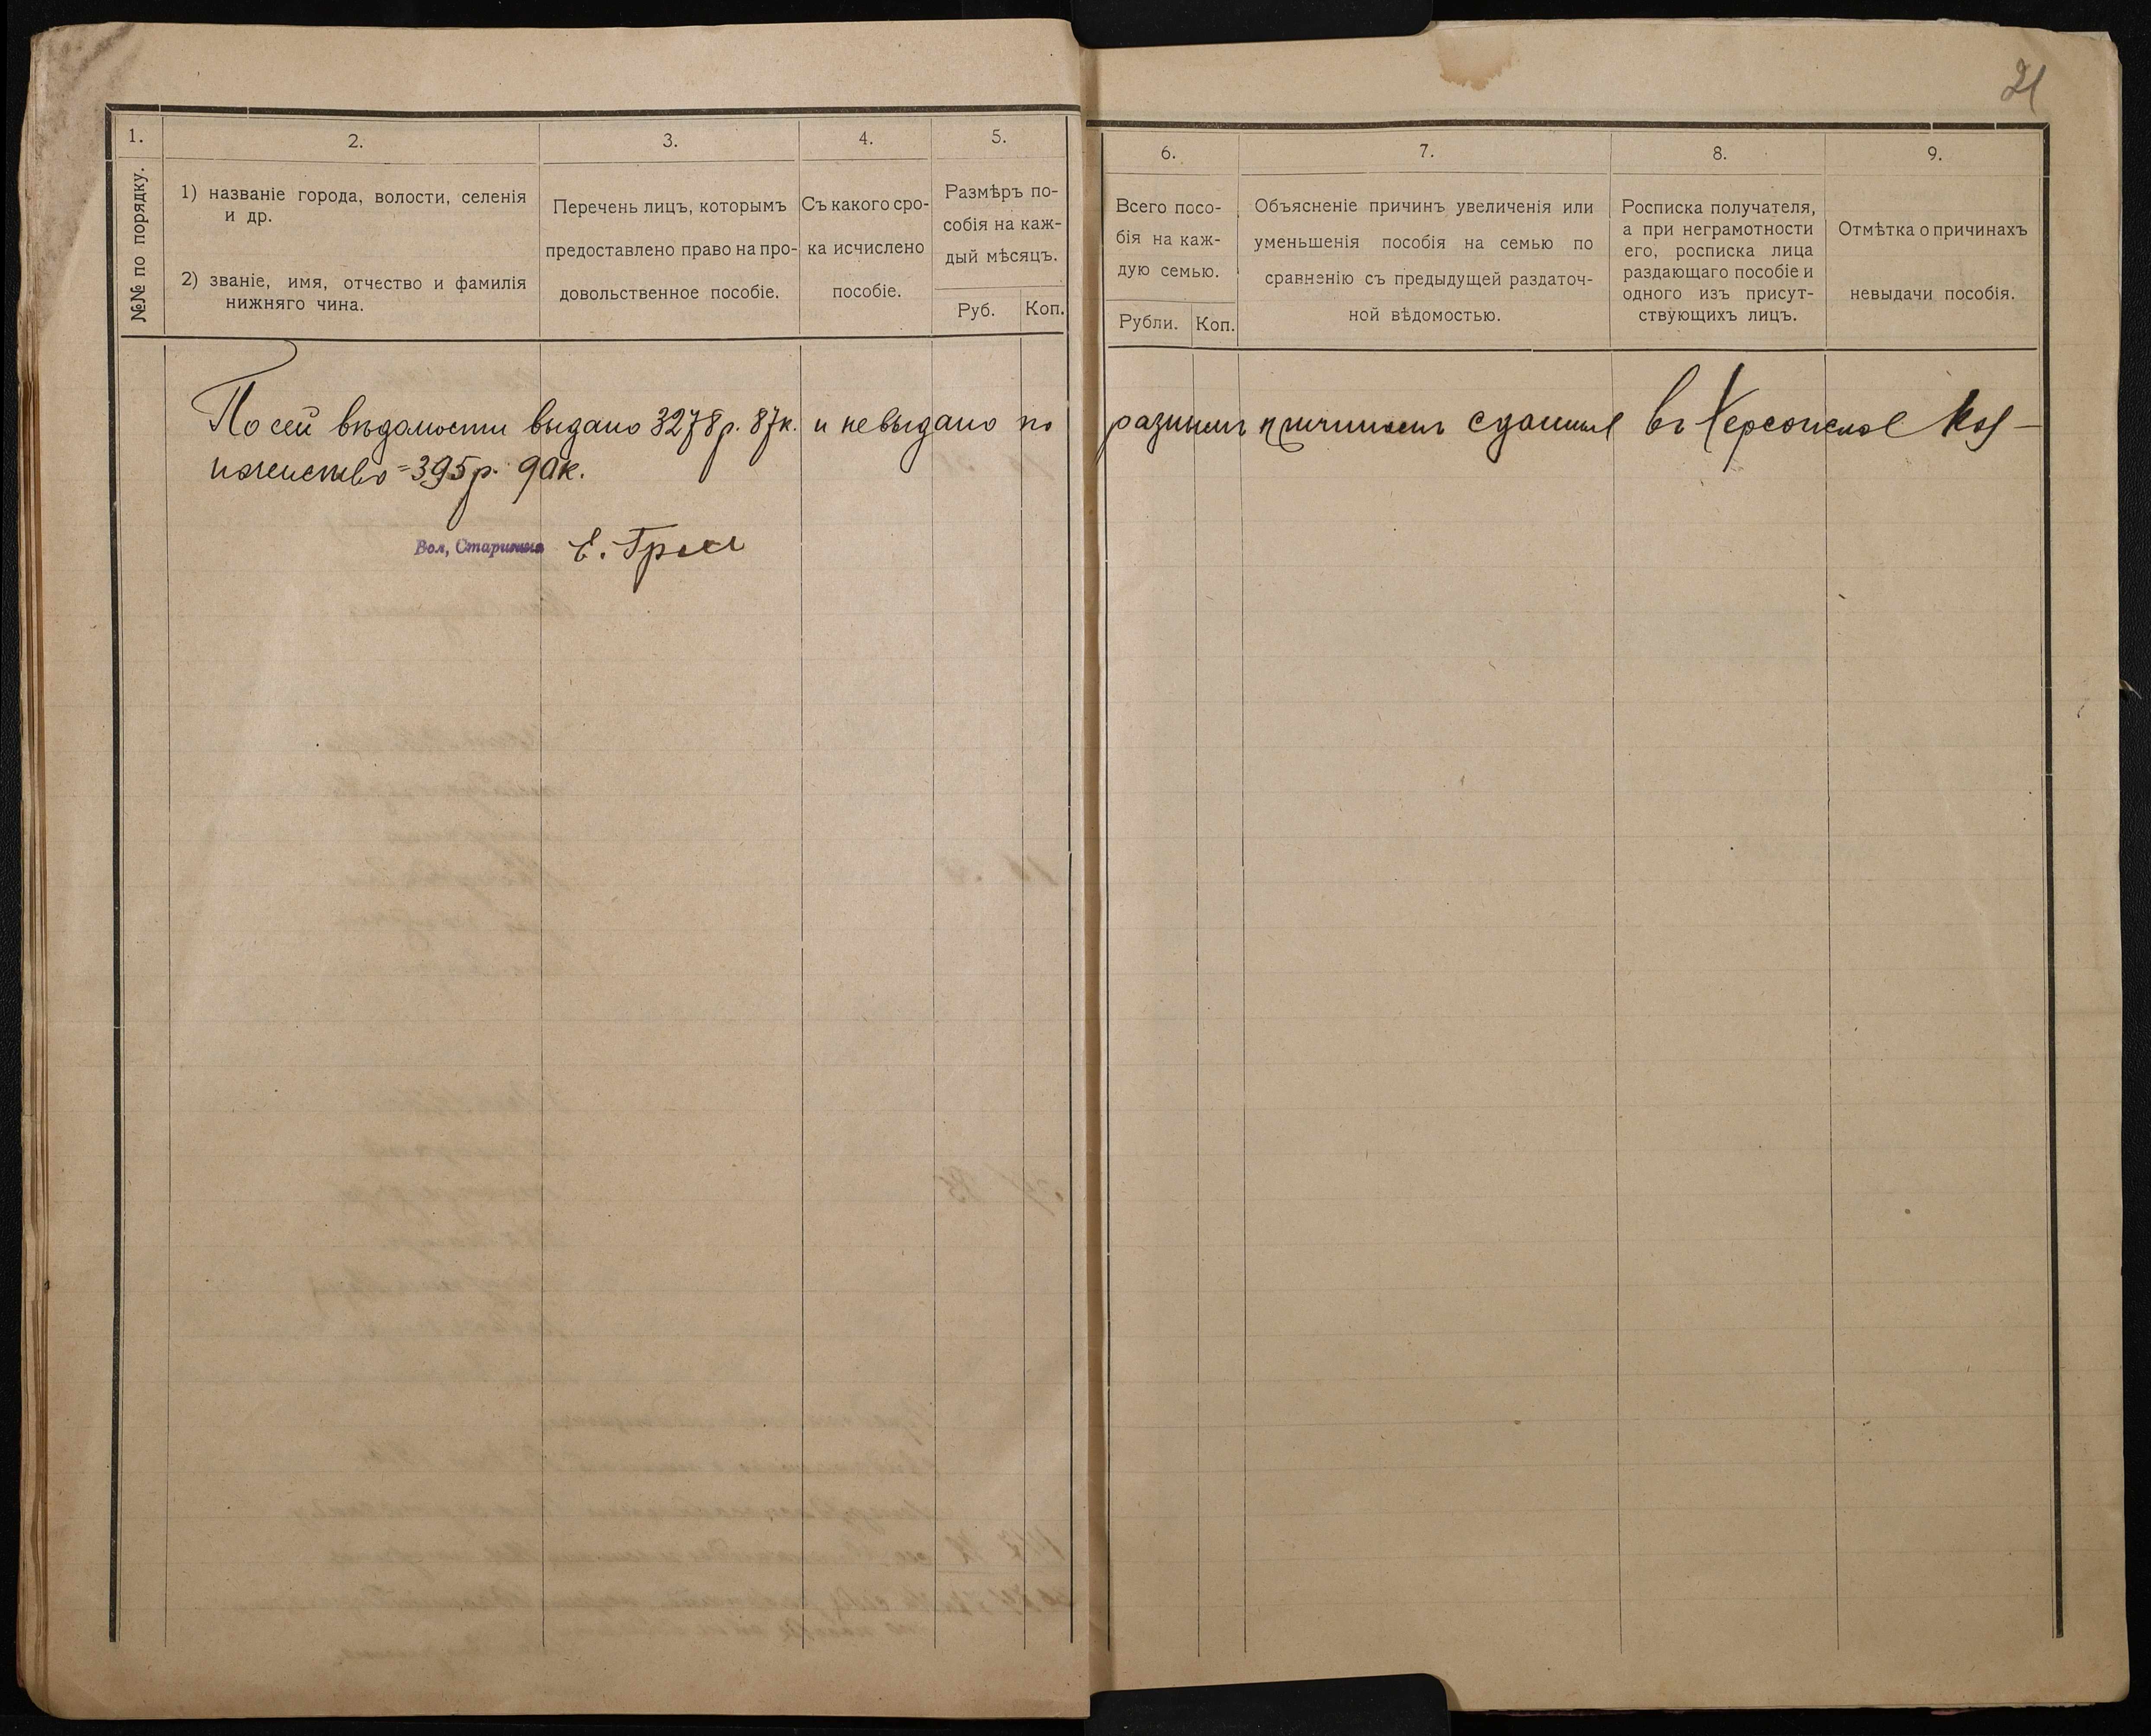 21
1.
№№ по порядку.
2.
1) названіе города, волости, селенія
и др.
2) званіе, имя, отчество и фамилія
нижняго чина.
3.
Перечень лицъ, которымъ
предоставлено право на про-
довольственное пособіе.
4.
Съ какого сро-
ка исчислено
пособіе.
5.
Размѣръ по-
собія на каж-
дый мѣсяцъ.
Руб. Коп.
6.
Всего посо-
бія на каж-
дую семью.
Рубли. Коп.
7.
Объясненіе причинъ увеличенія или
уменьшенія пособія на семью по
сравненію съ предыдущей раздаточ-
ной вѣдомостью.
8.
Росписка получателя,
а при неграмотности
его, росписка лица
раздающаго пособіе и
одного изъ присут-
ствующихъ лицъ.
9.
Отмѣтка о причинахъ
невыдачи пособія.
По сей вѣдомости выдано 3278 р. 87 к. и невыдано по разнымъ причинамъ въ Херсонское Каз-
начейство = 395 р. 90 к.
Вол, Старшина Е.